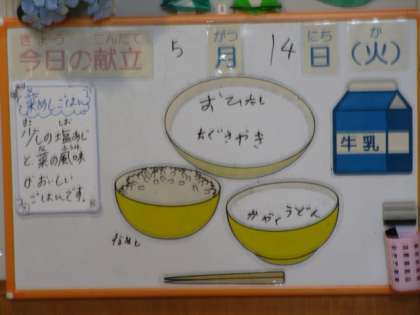 きょう こんだて
今日の献立
5 がつ 14 にち か
月 日（火）
菜めしごはん
少しの塩あじ
と菜の風味
がおいしい
ごはんです。
おひたし
たぐさやき
牛乳
なめし
かやくうどん